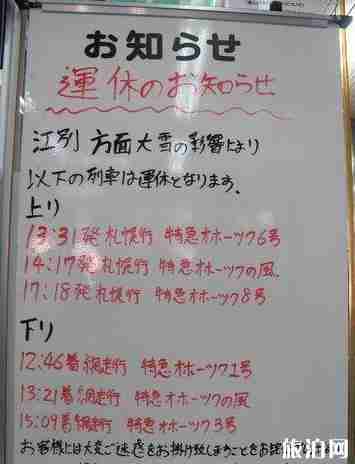 お知らせ
運休のお知らせ
江別 方面大雪の影響により
以下の列車は運休となります。
上り
13:31発 札幌行 特急オホーツク6号
14:17発 札幌行 特急オホーツクの風
17:18発 札幌行 特急オホーツク8号
下り
12:46着 網走行 特急オホーツク1号
13:21着 網走行 特急オホーツクの風
15:09着 網走行 特急オホーツク3号
お客様には大変ご迷惑をお掛け致しますことをお
旅泊网